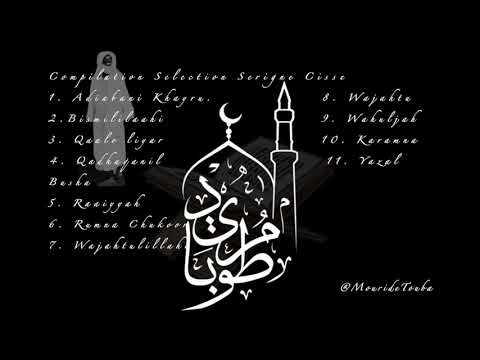 Compilation Selection Serigne Cisse
1. Adiabani Khayru,
2.Bismililaahi
3. Qaalo liyar
4. Qadhayanil
Busha
5. Raaiyyah
6. Rumna Chukoor
7. Wajahtulillah
8. Wajahtu
9. Wahuljah
10. Karamna
11. Yazal
مُريد
طوبا
@MourideTouba